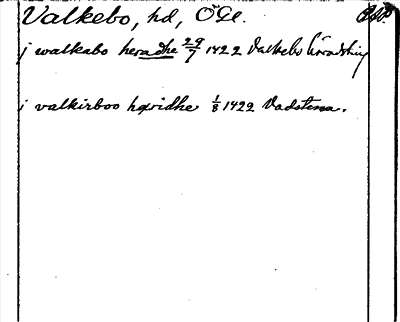 Valkebo, hd, ÖGl.
j walkabo heradhe 29/7 1422 Valkebo häradsting
j valkirboo hæridhe 1/8 1422 Vadstena.